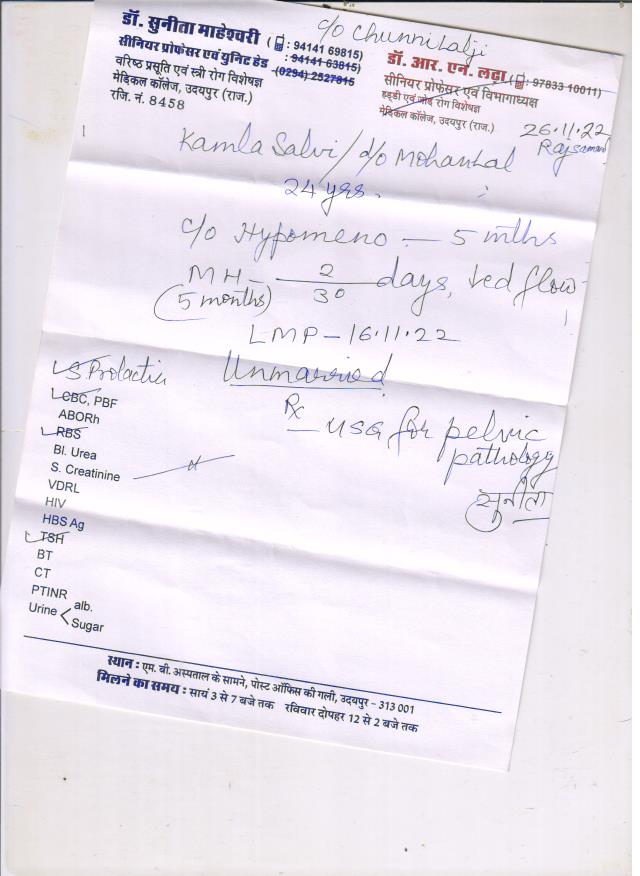 c/o Chunnilalji
डॉ. सुनीता माहेश्वरी
( : 94141 69815)
सीनियर प्रोफेसर एवं युनिट हेड : 94141 63815)
वरिष्ठ प्रसूति एवं स्त्री रोग विशेषज्ञ (0294) 2527815
मेडिकल कॉलेज, उदयपुर (राज.)
रजि. नं. 8458
डॉ. आर. एन. लढ़ा ( : 97833 10011)
सीनियर प्रोफेसर एवं विभागाध्यक्ष
हड्डी एवं जोड़ रोग विशेषज्ञ
मेडिकल कॉलेज, उदयपुर (राज.)
26.11.22
Rajsamand
Kamla Salvi / d/o Mohanlal
24 yrs.
c/o Hypomeno — 5 mths
MH - 2/30 days, red flow
(5 months)
LMP - 16.11.22
Unmarried
S Prolactin
CBC, PBF
ABORh
RBS
Bl. Urea
S. Creatinine
VDRL
HIV
HBS Ag
TSH
BT
CT
PTINR
Urine < alb.
Sugar
Rx
USG for pelvic
pathology
सुनीता
स्थान : एम. बी. अस्पताल के सामने, पोस्ट ऑफिस की गली, उदयपुर - 313 001
मिलने का समय : सायं 3 से 7 बजे तक रविवार दोपहर 12 से 2 बजे तक